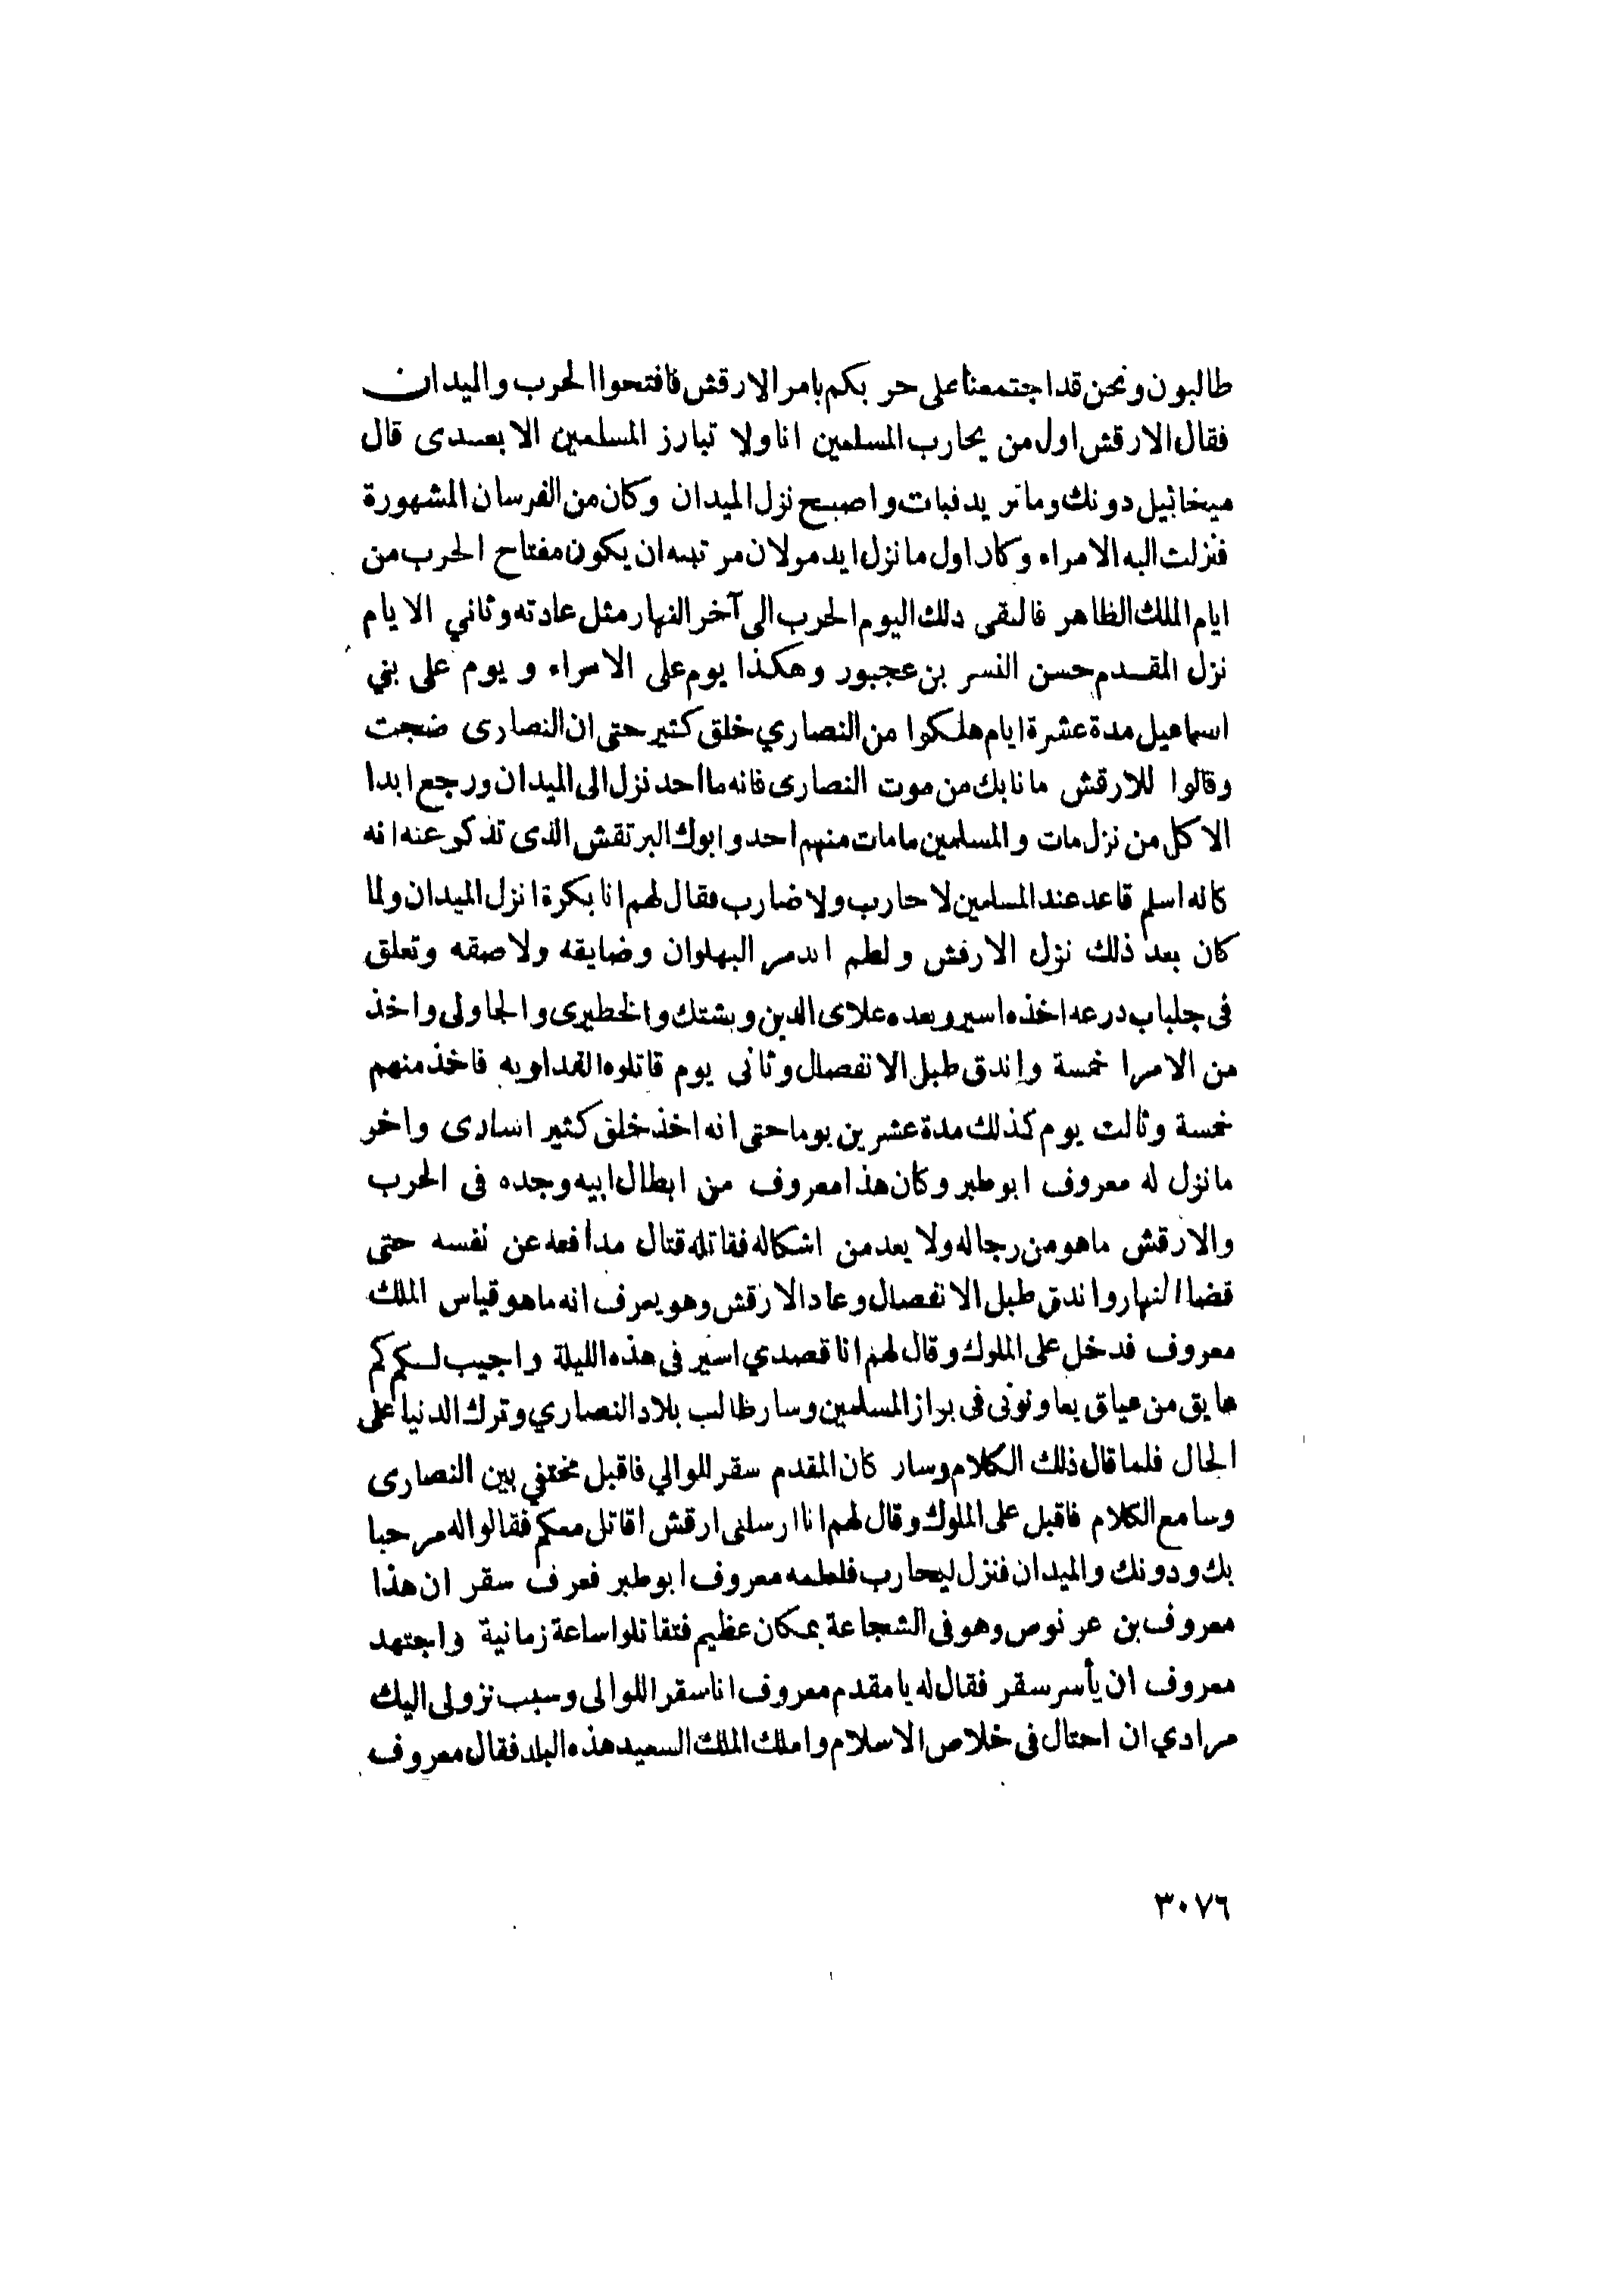 طالبون ونحن قد اجتمعنا على حر بكم بامر الارقش فافتحوا الحرب والميدان
فقال الارقش اول من يحارب المسلمين انا ولا تبارز المسلمين الا بعدى قال
ميخائيل دونك وما تر يد فبات واصبح نزل الميدان وكان من الفرسان المشهورة
فنزلت اليه الامراء وكان اول ما نزل ايدمر لان مر تبته ان يكون مفتاح الحرب من
ايام الملك الظاهر فالتقى ذلك اليوم الحرب الى آخر النهار مثل عادته وثاني الايام
نزل المقدم حسن النسر بن عجبور وهكذا يوم على الامراء و يوم على بني
اسماعيل مدة عشرة ايام هلكوا من النصاري خلق كثير حتى ان النصارى ضجت
وقالوا للارقش ما نابك من موت النصارى فانه ما احد نزل الى الميدان ورجع ابدا
الا كل من نزل مات والمسلمين ما مات منهم احد وابوك البرتقش الذى تذكر عنه انه
كانه اسلم قاعد عند المسلمين لا حارب ولا ضارب فقال لهم انا بكرة انزل الميدان ولما
كان بعد ذلك نزل الارقش ولطم ايدمر البهلوان وضايقه ولاصقه وتعلق
فى جلباب درعه اخذه اسير وبعده علاى الدين وبشتك والخطيرى والجاولى واخذ
من الامرا خمسة واندق طبل الانفصال وثانى يوم قاتلوه الفداويه فاخذ منهم
خمسة وثالت يوم كذلك مدة عشرين يوما حتى انه اخذ خلق كثير اسارى واخر
ما نزل له معروف ابو طبر وكان هذا معروف من ابطال ابيه وجده فى الحرب
والارقش ما هو من رجاله ولا يعد من اشكاله فقاتله قتال مدافعه عن نفسه حتى
قضا النهار واندق طبل الانفصال وعاد الارقش وهو يعرف انه ما هو قياس الملك
معروف فدخل على الملوك وقال لهم انا قصدي اسير فى هذه الليلة واجيب لكم كم
عايق من عياق يعاونونى فى براز المسلمين وسار طالب بلاد النصاري وترك الدنيا على
الحال فلما قال ذلك الكلام وسار كان المقدم سقر للوالي فاقبل مختفي بين النصارى
وسامع الكلام فاقبل على الملوك وقال لهم انا ارسلنى ارقش اقاتل معكم فقالوا له مر حبا
بك ودونك والميدان فنزل ليحارب فلطمه معروف ابو طبر فعرف سقر ان هذا
معروف بن عر نوص وهو فى الشجاعة بمكان عظيم فتقاتلوا ساعة زمانية واجتهد
معروف ان يأسر سقر فقال له يا مقدم معروف انا سقر اللوالى وسبب نزولى اليك
مرادي ان احتال فى خلاص الاسلام واملك الملك السعيد هذه البلد فقال معروف
٣٠٧٦